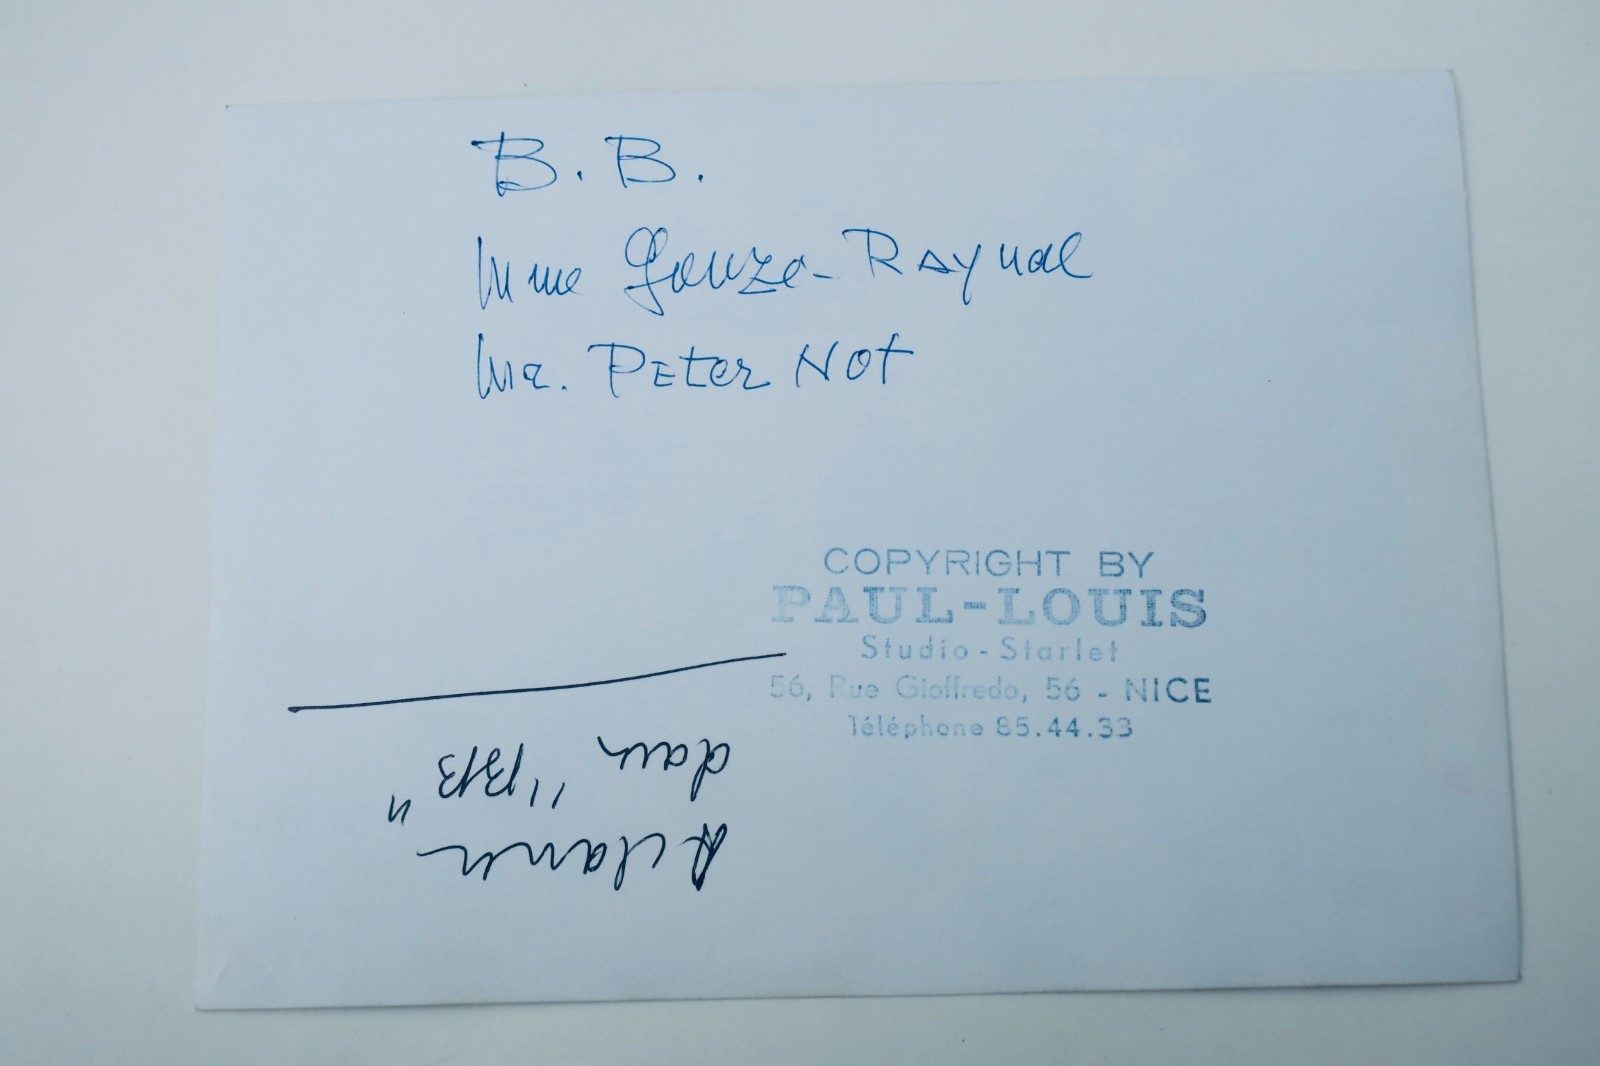 B. B.
Mme Gonzo-Raynal
Mr. Peter Not
COPYRIGHT BY
PAUL-LOUIS
Studio - Starlet
56, Rue Gioffredo, 56 - NICE
Téléphone 85.44.33
dans "BB"